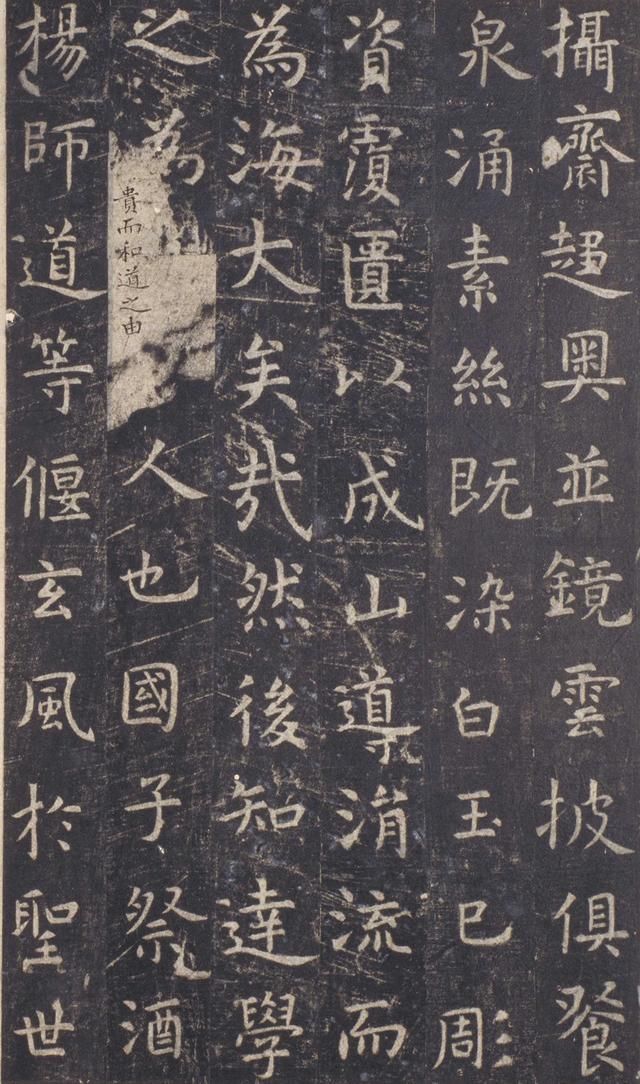 攝齋趍奧並鏡雲披俱餐
泉涌素絲既染白玉已彫
資覆匱以成山導涓流而
為海大矣哉然後知達學
之為貴而和道之由人也國子祭酒
楊師道等偃玄風於聖世